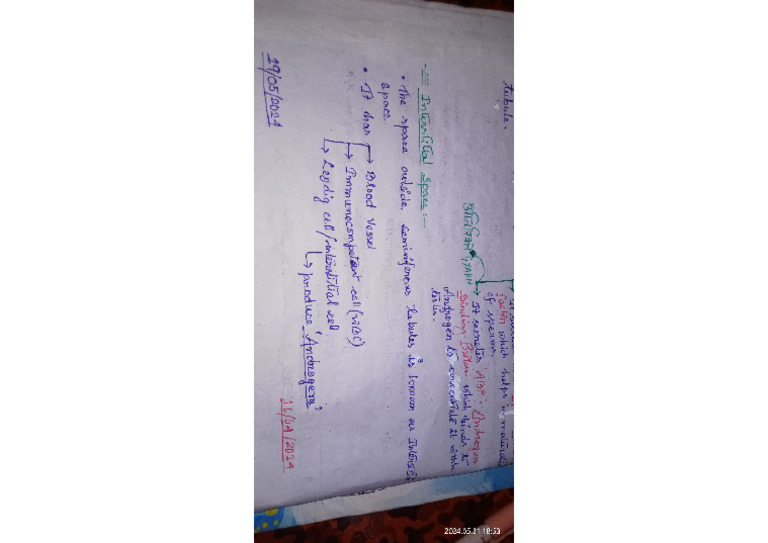 tubule.
factor which helps in
of sperms.
It secretes 'ABP' : Androgen
Binding Protein which binds to
Androgen to concentrate it within
testis.
Interstitial Space :-
• The space outside seminiferous tubules is known as
space.
• It has → Blood Vessel
→ Immunocompetent cell (WBC)
→ Leydig cell/interstitial cell
↳ produce 'Androgens'
19/05/2024
2024.05.21 18:53